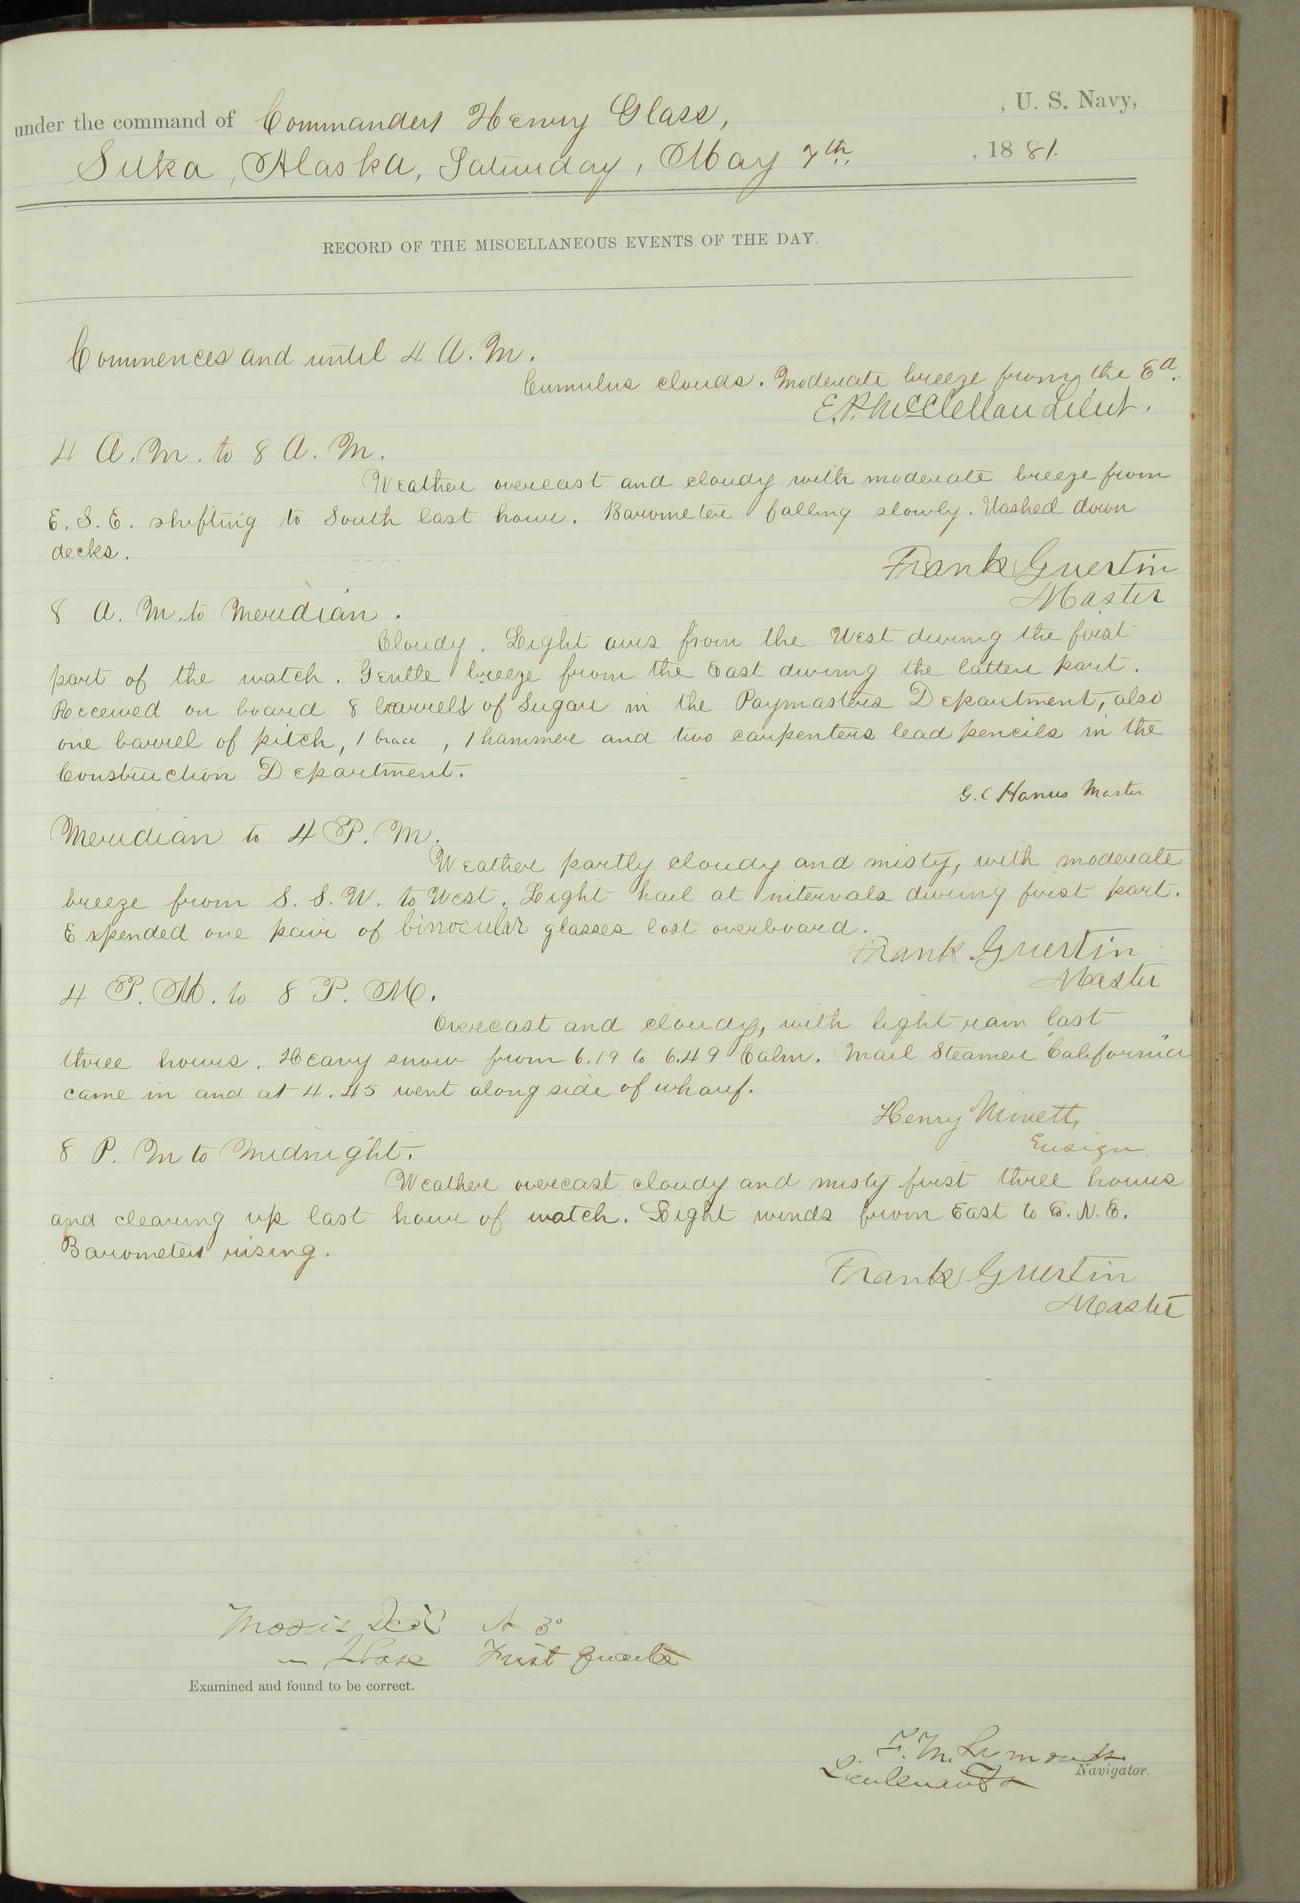 under the command of Commander Henry Glass, , U. S. Navy,
Sitka, Alaska, Saturday, May 7th, , 1881.
RECORD OF THE MISCELLANEOUS EVENTS OF THE DAY.
Commences and until 4 A. M.
Cumulus clouds. Moderate breeze from the Ed.
E.P. McClellan Lieut.
4 A. M. to 8 A. M.
Weather overcast and cloudy with moderate breeze from
E. S. E. shifting to South last hour. Barometer falling slowly. Washed down
decks.
Frank Guertin
Master
8 A. M. to Meridian.
Cloudy. Light airs from the West during the first
part of the watch. Gentle breeze from the East during the latter part.
Received on board 8 barrels of Sugar in the Paymasters Department, also
one barrel of pitch, 1 brace, 1 hammer and two carpenters lead pencils in the
Construction Department.
G. C Hanus Master
Meridian to 4 P. M.
Weather partly cloudy and misty, with moderate
breeze from S. S. W. to West. Light hail at intervals during first part.
Expended one pair of binocular glasses lost overboard.
Frank Guertin
Master
4 P. M. to 8 P. M.
Overcast and cloudy, with light rain last
three hours. Heavy snow from 6.19 to 6.49 Calm. Mail Steamer "California"
came in and at 4.45 went along side of wharf.
Henry Minett,
Ensign
8 P. M to Midnight.
Weather overcast cloudy and misty first three hours
and clearing up last hour of watch. Light winds from East to E. N. E.
Barometer rising.
Frank Guertin
Master
Moon's Decl N 3°
" Phase First Quarter
Examined and found to be correct.
F. M. Symonds
Lieutenant & Navigator.